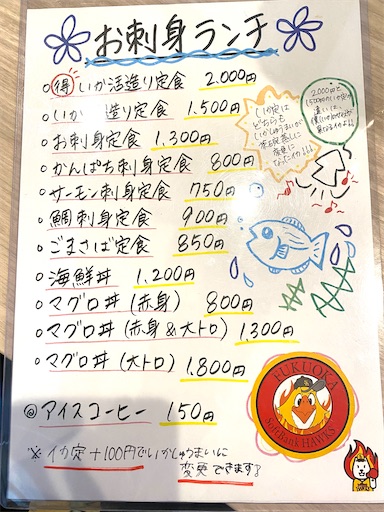 お刺身ランチ
得 いか活造り定食 2.000円
いか 造り定食 1.500円
お刺身定食 1.300円
かんぱち刺身定食 800円
サーモン刺身定食 750円
鯛刺身定食 900円
ごまさば定食 850円
海鮮丼 1.200円
マグロ丼(赤身) 800円
マグロ丼(赤身&大トロ) 1.300円
マグロ丼(大トロ) 1.800円
@アイスコーヒー 150円
※イカ定+100円でいかしゅうまいに
変更できます
いか定は
どちらも
いかしゅうまいが
2,000円と
1,500円のいか定の
違いは、
FUKUOKA
SoftBank HAWKS